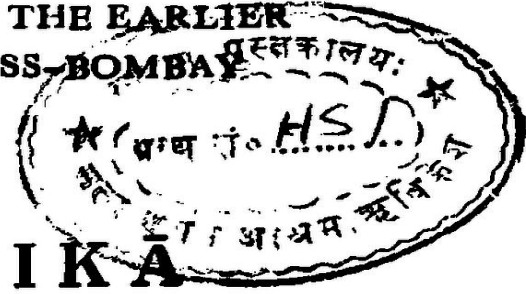 THE EARLIER
SS-BOMBAY
पुस्तकालयः
ग्रन्थ सं० HSD
आश्रम, ऋषिकेश
IKĀ